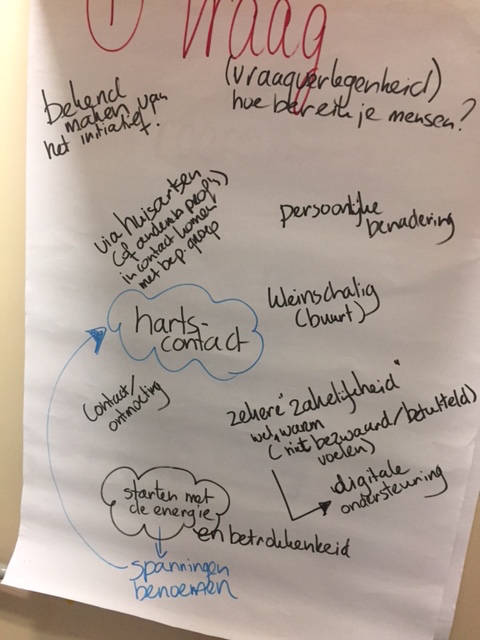 1 Vraag
(vraagverlegenheid)
hoe bereik je mensen?
bekend
maken van
het initiatief!
via huisartsen
(of andere profs)
in contact komen
met bep. groep
persoonlijke
benadering
kleinschalig
(buurt)
harts-
contact
contact/
ontmoeting
zekere "zakelijkheid"
wel warm
(niet bezwaard/betutteld)
voelen)
digitale
ondersteuning
starten met
de energie
en betrokkenheid
spanningen
benoemen